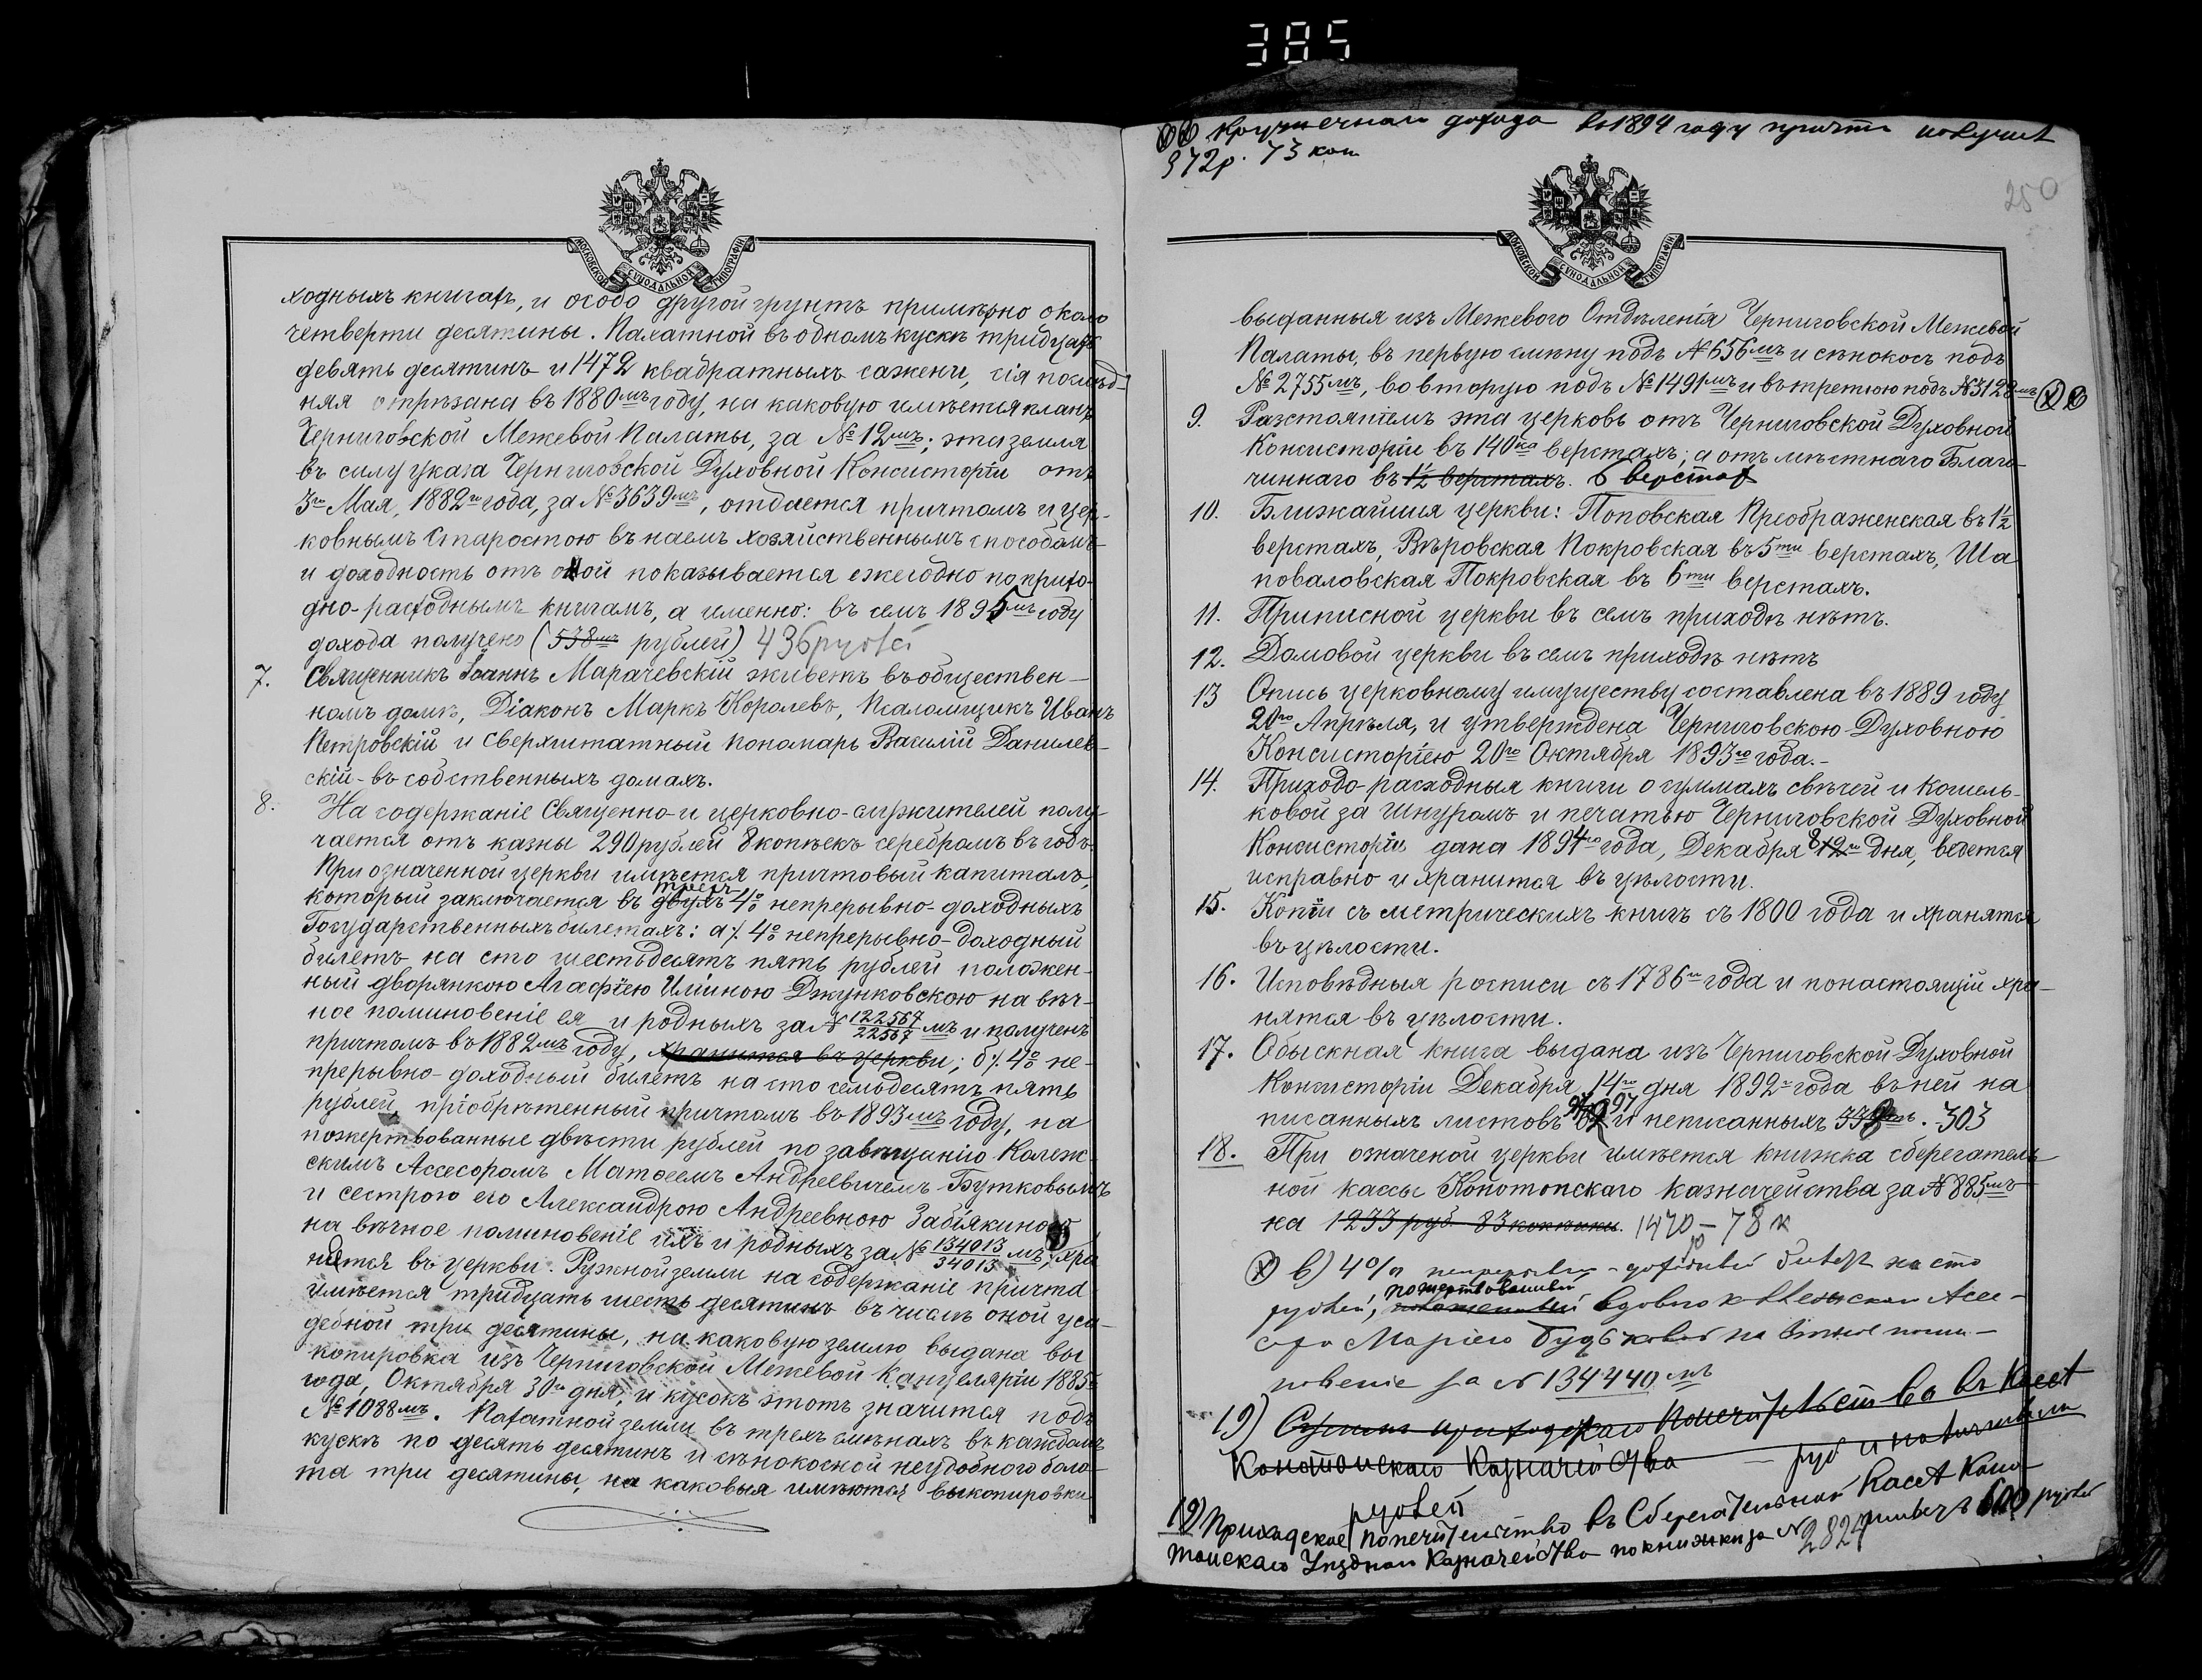 385
МОСКОВСКОЙ СѴНОДАЛЬНОЙ ТИПОГРАФІИ
ходныхъ книгахъ, и особо другой грунтъ примѣрно около
четверти десятины. Пахатной въ одномъ кускѣ тридцать
девять десятинъ и 1472 квадратныхъ сажени, сія послѣд-
няя отрѣзана въ 1880мъ году, на каковую имѣется планъ
Черниговской Межевой Палаты, за № 12мъ; эта земля
въ силу указа Черниговской Духовной Консисторіи отъ
3го Мая, 1882го года, за № 3639мъ, отдается причтомъ и цер-
ковнымъ Старостою въ наемъ хозяйственнымъ способомъ
и доходность отъ оной показывается ежегодно по прихо-
дно-расходнымъ книгамъ, а именно: въ семъ 1895мъ году
дохода получено (538мъ рублей) 436 рублей
7. Священникъ Іоаннъ Марачевскій живетъ въ обществен-
номъ домѣ, Діаконъ Маркъ Королевъ, Псаломщикъ Иванъ
Петровскій и сверхштатный пономарь Василій Данилев-
скій - въ собственныхъ домахъ.
8. На содержаніе Священно- и церковно-служителей полу-
чается отъ казны 290 рублей 8 копѣекъ серебромъ въ годъ.
При означенной церкви имѣется причтовый капиталъ,
трехъ
который заключается въ двухъ 4% непрерывно-доходныхъ
Государственныхъ билетахъ: а/. 4% непрерывно-доходный
билетъ на сто шестьдесятъ пять рублей положен-
ный дворянкою Агафіею Иліиною Джунковскою на вѣч-
ное поминовеніе ея и родныхъ за № 122567/22567 мъ и полученъ
причтомъ въ 1882мъ году, хранится въ церкви; б/. 4% не-
прерывно-доходный билетъ на сто семьдесятъ пять
рублей, пріобрѣтенный причтомъ въ 1893мъ году, на
пожертвованные двѣсти рублей по завѣщанію Колеж-
скимъ Ассесоромъ Матѳеемъ Андреевичемъ Бутковымъ
и сестрою его Александрою Андреевною Забіякиною
на вѣчное поминовеніе ихъ и родныхъ за № 134013/34013 мъ, хра
нятся въ церкви. Ружной земли на содержаніе причта
имѣется тридцать шесть десятинъ въ числѣ оной уса-
дебной три десятины, на каковую землю выдана вы
копировка изъ Черниговской Межевой Канцеляріи 1885го
года, Октября 30го дня, и кусокъ этотъ значится подъ
№ 1088мъ. Пахатной земли въ трехъ смѣнахъ въ каждомъ
кускѣ по десять десятинъ и сѣнокосной неудобнаго боло-
та три десятины, на каковыя имѣются выкопировки
кружечнаго дохода въ 1894 году причтъ получилъ
372 р. 73 коп
250
МОСКОВСКОЙ СѴНОДАЛЬНОЙ ТИПОГРАФІИ
выданныя изъ Межевого Отдѣленія Черниговской Межевой
Палаты, въ первую смѣну подъ № 656мъ и сѣнокосъ подъ
№ 2755мъ, во вторую подъ № 1491мъ и въ третюю подъ № 3128мъ
9. Разстояніемъ эта церковь отъ Черниговской Духовной
Консисторіи въ 140ка верстахъ; а отъ мѣстнаго Благо-
чиннаго въ 1½ верстахъ. 6 верстах
10. Ближайшия церкви: Поповская Преображенская въ 1½
верстахъ, Вѣровская Покровская въ 5ти верстахъ, Ша
поваловская Покровская въ 6ти верстахъ.
11. Приписной церкви въ семъ приходѣ нѣтъ.
12. Домовой церкви въ семъ приходѣ нѣтъ
13 Опись церковному имуществу составлена въ 1889 году
20го Апрѣля, и утверждена Черниговскою Духовною
Консисторіею 20го Октября 1893го года.-
14. Приходо-расходныя книги о суммахъ свѣчей и кошель-
ковой за шнуромъ и печатью Черниговской Духовной
Консисторіи дана 1894го года, Декабря 8 12го дня, ведется
исправно и хранится въ цѣлости.
15. Копіи съ метрическихъ книгъ съ 1800 года и хранятся
въ цѣлости.
16. Исповѣдныя росписи съ 1786го года и по настоящій хра-
нятся въ цѣлости.
17. Обыскная книга выдана изъ Черниговской Духовной
Консисторіи Декабря, 14го дня 1892го года въ ней на
писанныхъ листовъ 97 и неписанныхъ . 303
18. При означеной церкви имѣется книжка сберегатель
ной кассы Конотопскаго казначейства за № 885мъ
на 1233 руб. 83 копѣики. 1470 - 78 к
в) 4% непрерывно-доходный билетъ на сто
пожертвованный
рублей, вдовою Асес-
сора Маріею на вѣчное поми-
новеніе за № 134440мъ
19) Сумма приходскаго Попечительства въ кассѣ
Конотопскаго Казначейства руб и
рублей
19) Приходское попечительство въ Сберегательной Кассѣ Коно-
топскаго Уѣзднаго Казначейства по книжкѣ за № 2824 имѣетъ 600 рублей